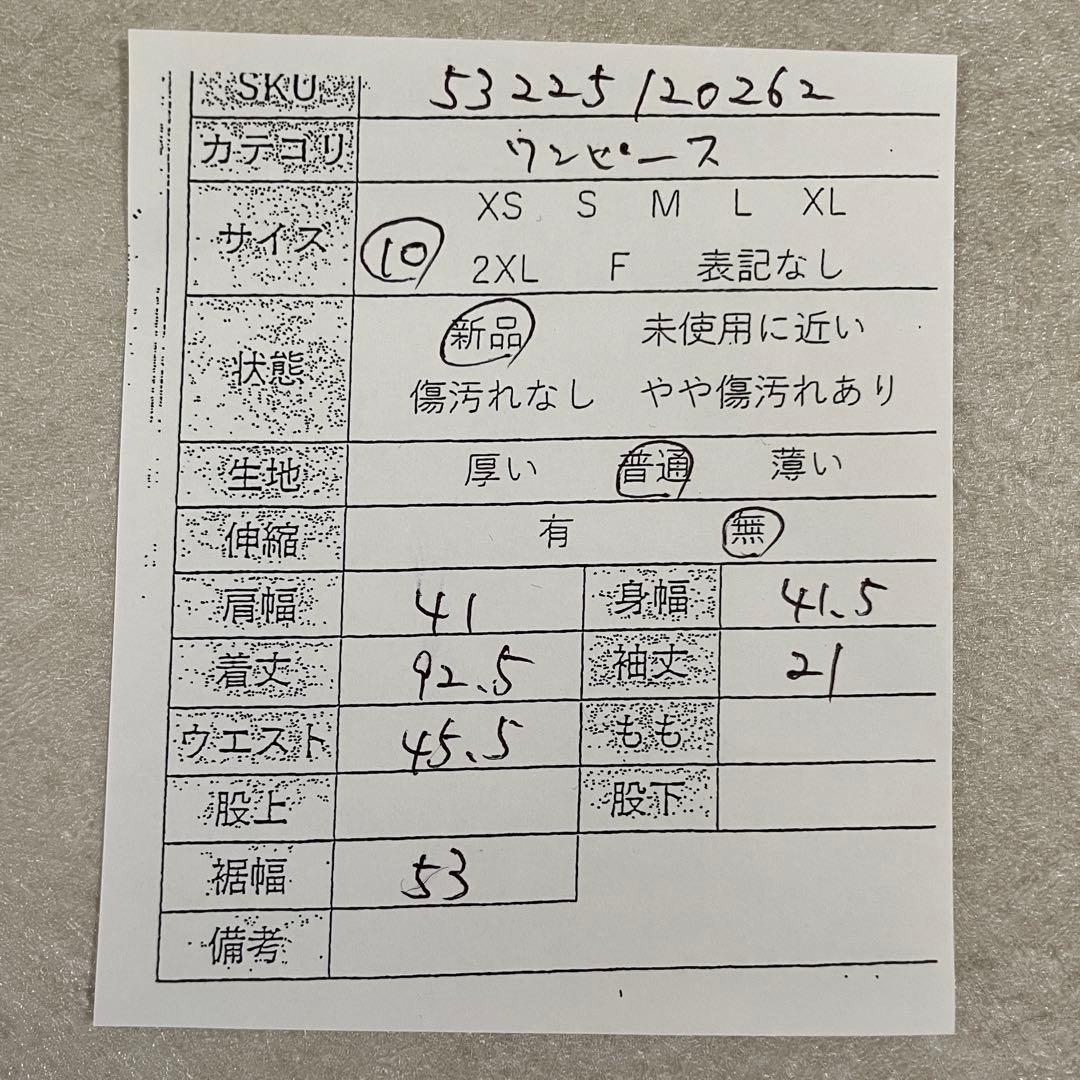 SKU 53225120262
カテゴリ ワンピース
サイズ XS S M L XL
10 2XL F 表記なし
状態 新品 未使用に近い
傷汚れなし やや傷汚れあり
生地 厚い 普通 薄い
伸縮 有 無
肩幅 41 身幅 41.5
着丈 92.5 袖丈 21
ウエスト 45.5 もも
股上 股下
裾幅 53
備考